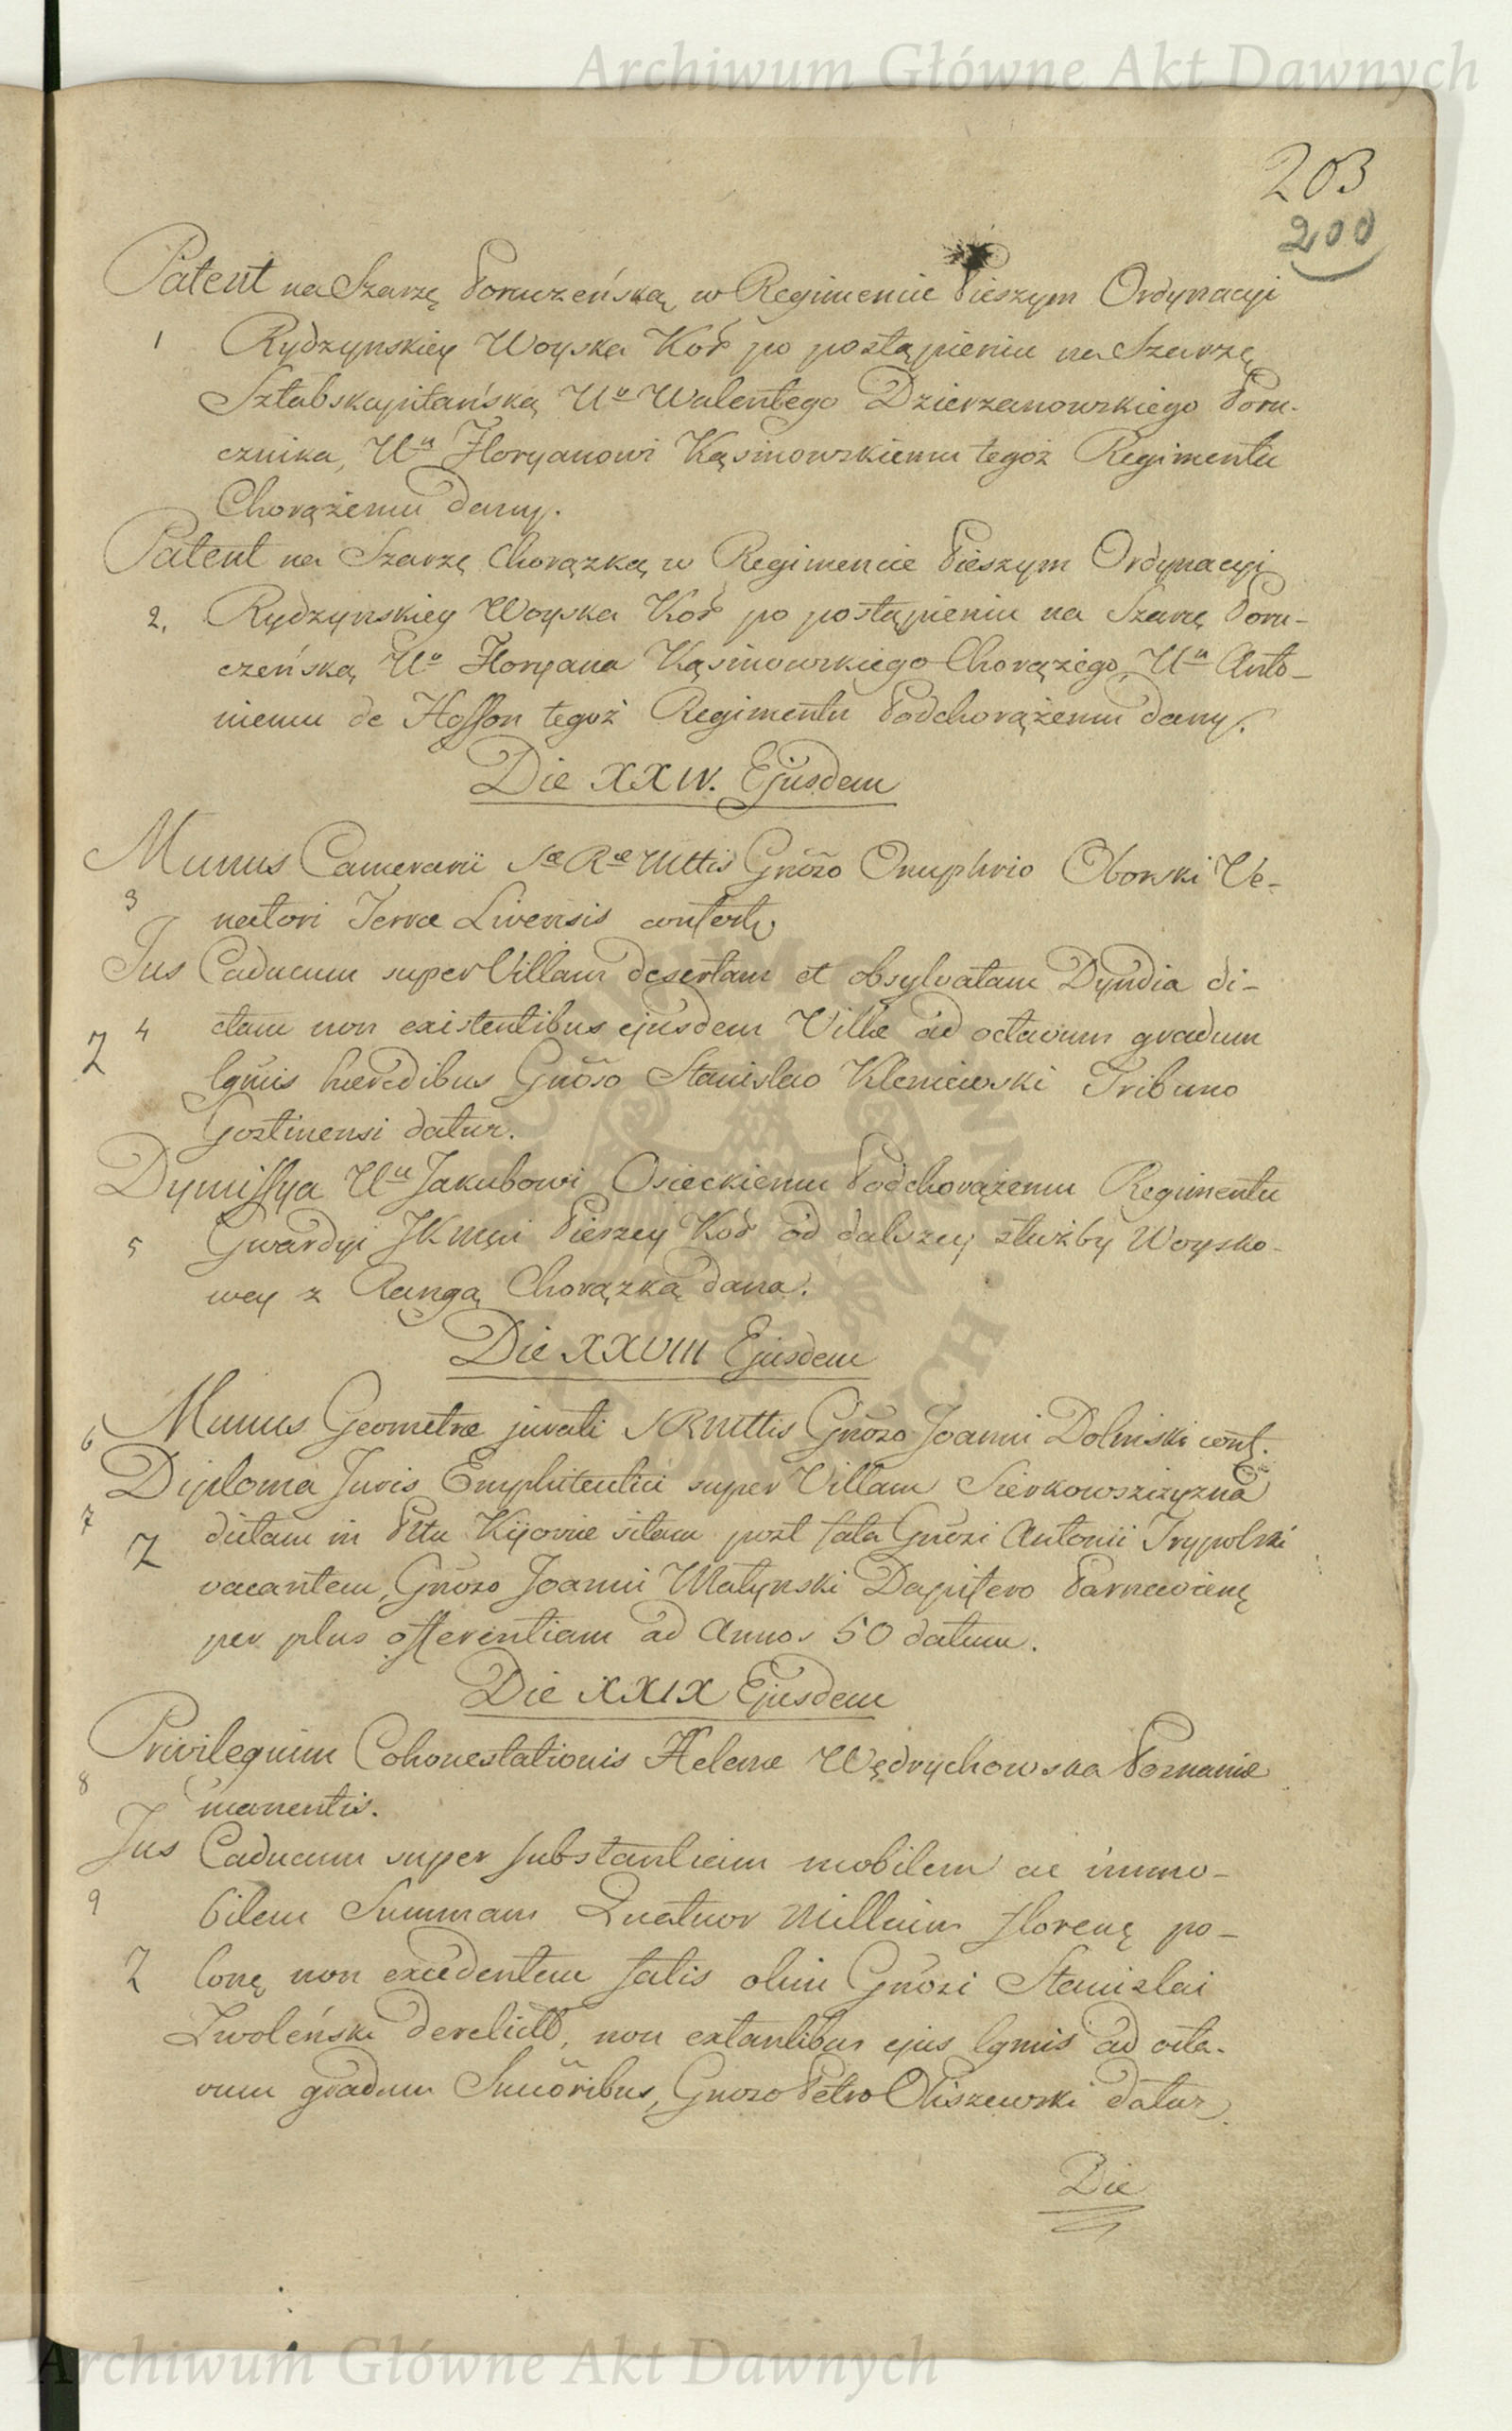 Archiwum Główne Akt Dawnych
203
200
Patent na Szarżę Poruczeńską w Regimencie Pieszym Ordynacyi
1 Rydzynskiey Woyska Kor po postąpieniu na Szarżę
Sztabskapitańską Uo Walentego Dzierzanowskiego Poru-
cznika, Uu Floryanowi Kąsinowskiemu tegoż Regimentu
Chorążemu dany.
Patent na Szarżę Chorązką w Regimencie Pieszym Ordynacyi
2. Rydzynskiey Woyska Kor po postąpieniu na Szarżę Poru-
czeńską Uo Floryana Kąsinowskiego Chorążego, Uu Anto-
niemu de Hoffon tegoż Regimentu Podchorążemu dany.
Die XXIV. Ejusdem
Munus Camerarii Sæ Ræ Mttis Gnõso Onuphrio Oborski Ve-
3 natori Terræ Livensis confertr
Jus Caducum super Villam desertam et obsylvatam Dyndia di-
4 ctam non existentibus ejusdem Villæ ad octavum gradum
Z lgmis hæredibus Gnõso Stanislao Kleniewski Tribuno
Gostinensi datur.
Dymissya Uu Jakubowi Osieckiemu Podchorążemu Regimentu
5 Gwardyi JKMci Pieszey Kor od dalszey służby Woysko-
wey z Rangą Chorązką dana.
Die XXVIII Ejusdem
6 Munus Geometræ jurati SRMttis Gnõso Joanni Dolinski conf.
Diploma Juris Emphiteutici super Villam Sierkowszczyzna
7 dictam in Pttu Kijoviæ sitam post fata Gnosi Antonii Trypolski
Z vacantem, Gnõso Joanni Matynski Dapifero Parnaviens
per plus offerentiam ad Annos 50 datum.
Die XXIX Ejusdem
Privilegium Cohonestationis Helenæ Wędrychowska Posnaniæ
8 manentis.
Jus Caducum super substantiam mobilem ac immo-
9 bilem Summam Quatuor Millium Florenę po-
Z lonę non excedentem fatis olim Gnõsi Stanislai
Zwoleński derelictã, non extantibus ejus lgmis ad octa-
vum gradum Succõribus, Gnoso Petro Oliszewski datur.
Die
Archiwum Główne Akt Dawnych